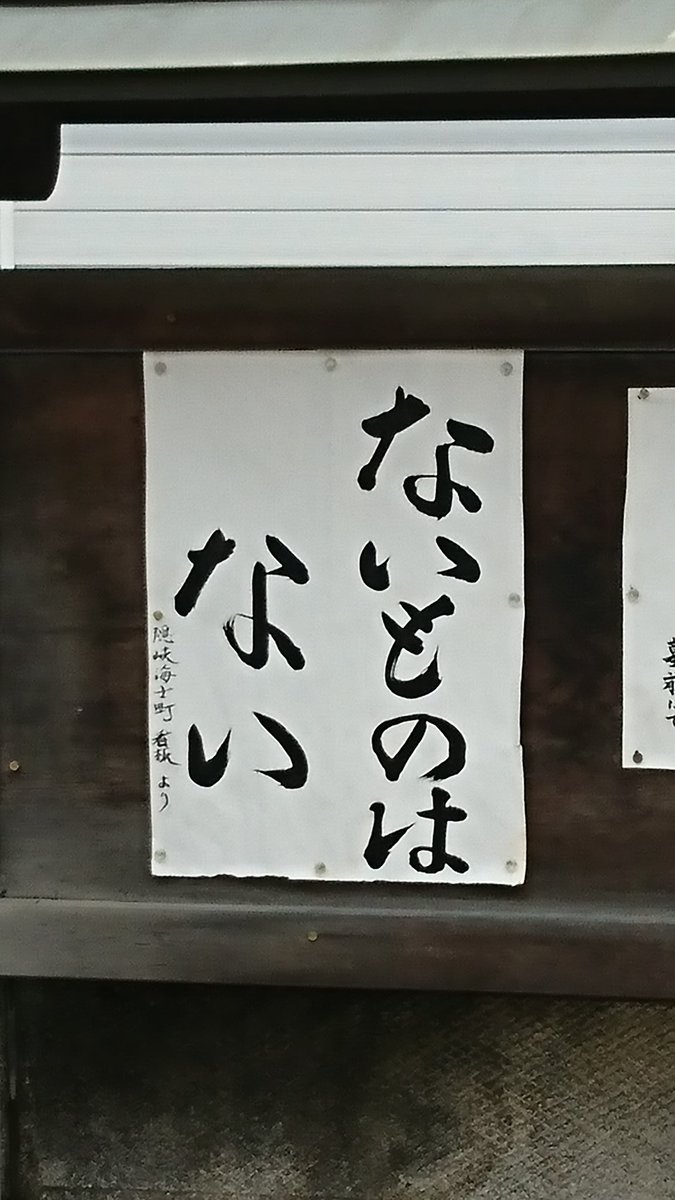 ないものは
ない
隠岐海士町 看板 より